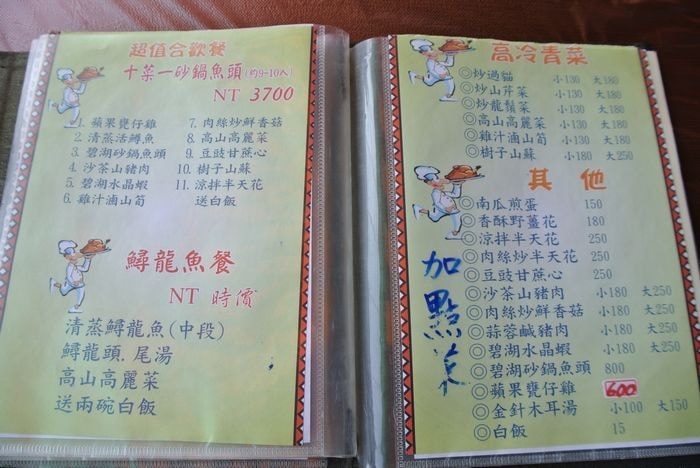 超值合歡餐
十菜一砂鍋魚頭(約9-10人)
NT 3700
1. 蘋果甕仔雞
2. 清蒸活鱒魚
3. 碧湖砂鍋魚頭
4. 沙茶山豬肉
5. 碧湖水晶蝦
6. 雞汁滷山筍
7. 肉絲炒鮮香菇
8. 高山高麗菜
9. 豆豉甘蔗心
10. 樹子山蘇
11. 涼拌半天花
送白飯
鱘龍魚餐
NT 時價
清蒸鱘龍魚(中段)
鱘龍頭.尾湯
高山高麗菜
送兩碗白飯
高冷青菜
◎炒過貓 小130 大180
◎炒山芹菜 小130 大180
◎炒龍鬚菜 小130 大180
◎高山高麗菜 小130 大180
◎雞汁滷山筍 小130 大180
◎樹子山蘇 小180 大250
其他
◎南瓜煎蛋 150
◎香酥野薑花 180
◎涼拌半天花 250
◎肉絲炒半天花 250
◎豆豉甘蔗心 250
◎沙茶山豬肉 小180 大250
◎肉絲炒鮮香菇 小180 大250
◎蒜蓉鹹豬肉 小180 大250
◎碧湖水晶蝦 小180 大250
◎碧湖砂鍋魚頭 800
◎蘋果甕仔雞 600
◎金針木耳湯 小100 大150
◎白飯 15
加點菜